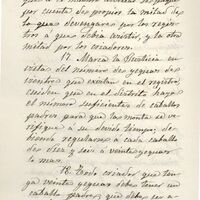 por cuenta de propios la mitad de
lo que devengaren por los regis-
tros a que deben asistir, y la otra
mitad por los criadores.
17. Marca la Justicia en
vista del numero de yeguas de
vientre que existan en el registro,
cuiden que en el distrito haya
el numero suficiente de caballos
padres para que las monta se ve-
rifique a su devido tiempo, de-
biendo regularse a cada caballo
de diez y seis a veinte yeguas
lo mas.
18. Todo criador que ten-
ga veinte yeguas debe tener un
caballo padre, que debe ser a-